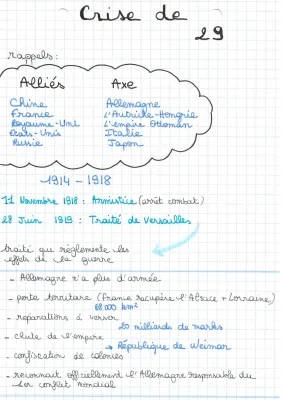 Crise de
29
rappels :
Alliés Axe
Chine Allemagne
France L'Autriche-Hongrie
Royaume-Uni L'empire Ottoman
Etats-Unis Italie
Russie Japon
1914 - 1918
11 Novembre 1918 : Armistice (arrêt combat)
28 Juin 1919 : Traité de Versailles
traité qui règlemente les
effets de la guerre
- Allemagne n'a plus d'armée
- perte territoire (France récupère l'Alsace + Lorraine)
68 000 km²
- réparations à verser
20 milliards de marks
- chute de l'empire
→ République de Weimar
- confiscation de colonies
- reconnait officiellement l'Allemagne responsable du
1er conflit mondial